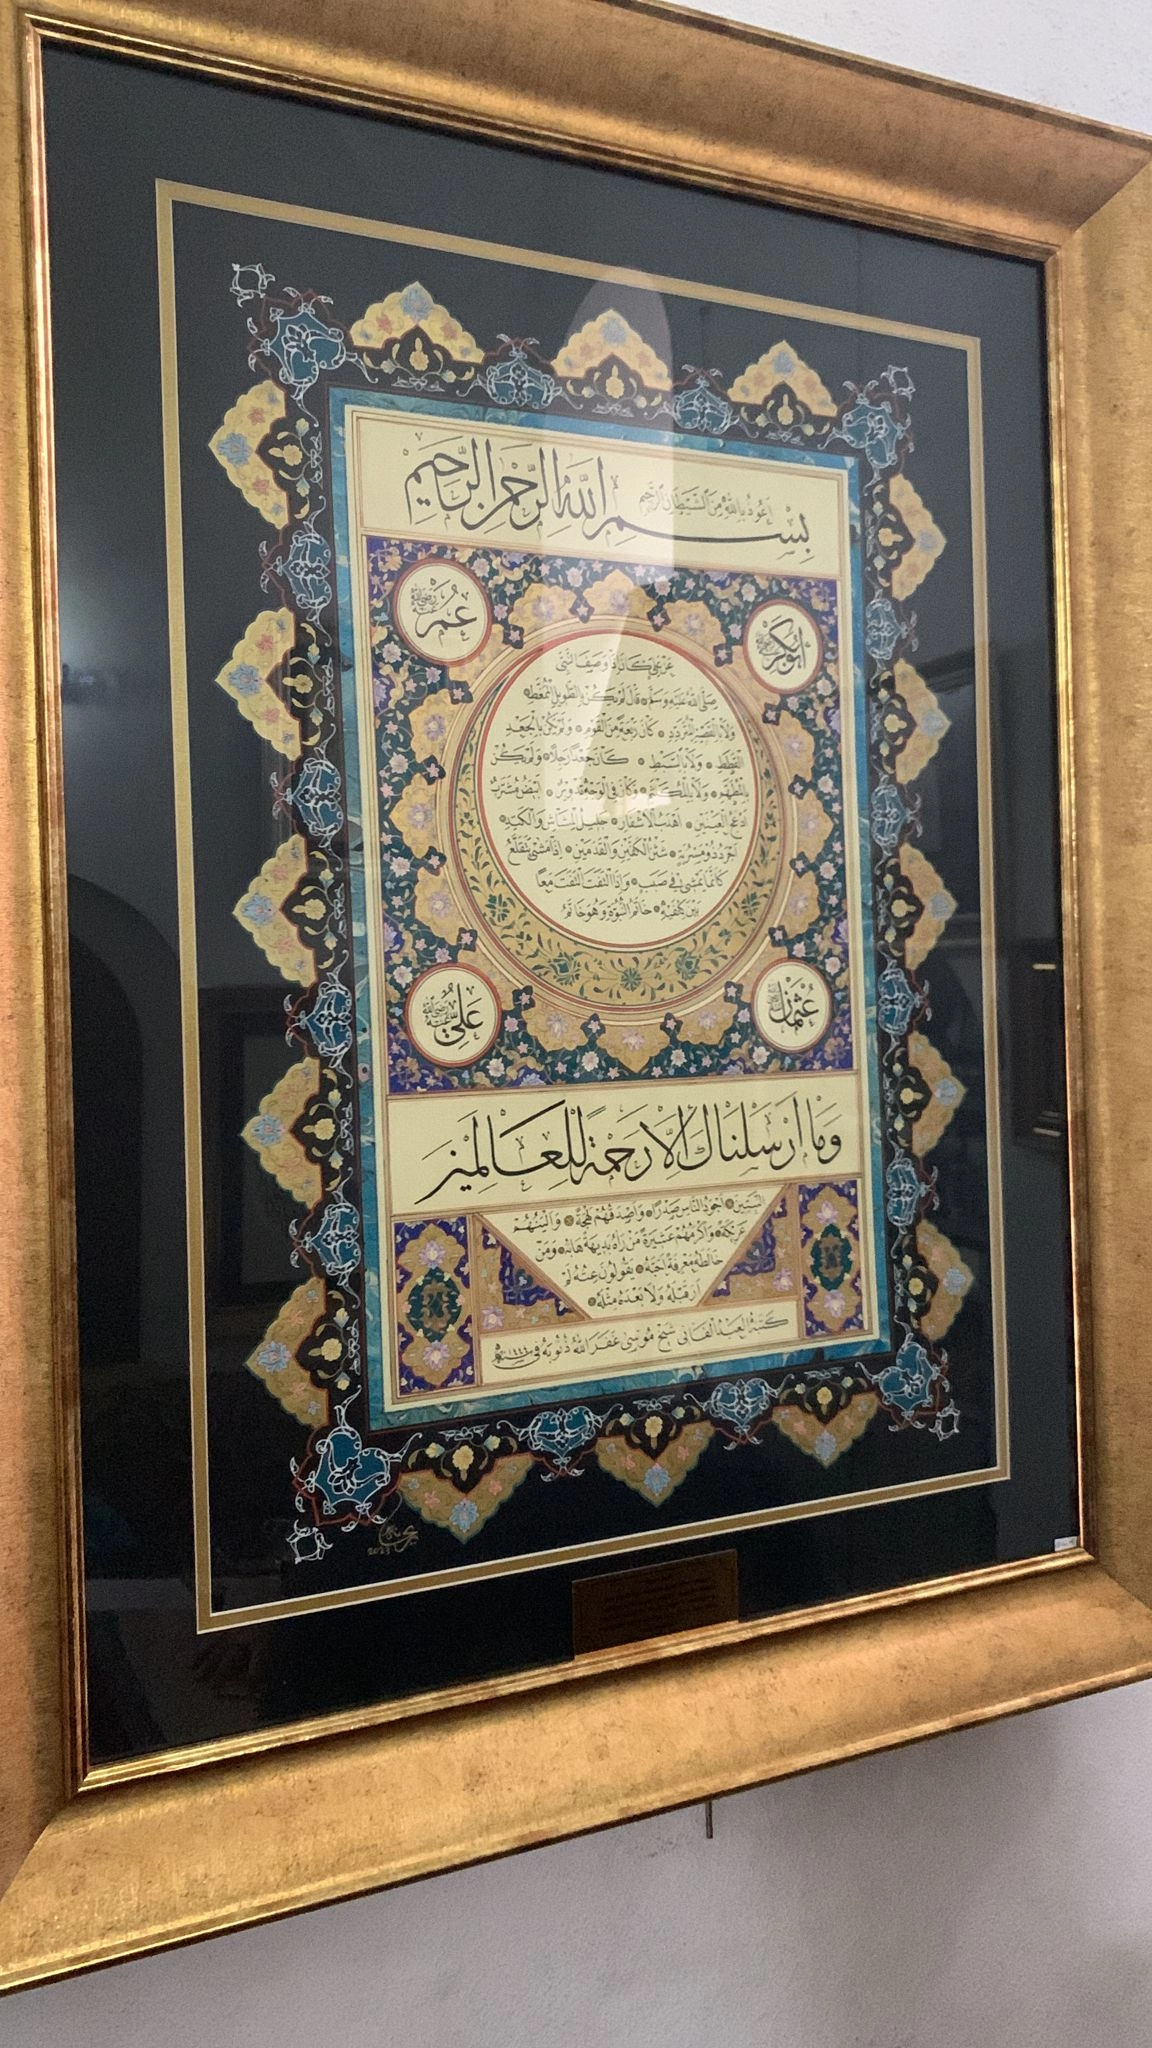 اعوذ بالله من الشيطان الرجيم
بسم الله الرحمن الرحيم
ابوبكر رضي الله عنه
عمر رضي الله عنه
عن علي كان اذا وصف النبي
صلى الله عليه وسلم قال لم يكن بالطويل الممغط
ولا بالقصير المتردد كان ربعة من القوم ولم يكن بالجعد
القطط ولا بالسبط كان جعدا رجلا ولم يكن
بالمطهم ولا بالمكلثم وكان في الوجه تدوير ابيض مشرب
ادعج العينين اهدب الاشفار جليل المشاش والكتد
اجرد ذو مسربة شثن الكفين والقدمين اذا مشى تقلع
كانما يمشي في صبب واذا التفت التفت معا
بين كتفيه خاتم النبوة وهو خاتم
عثمان رضي الله عنه
علي رضي الله عنه
وما ارسلناك الا رحمة للعالمين
النبيين اجود الناس صدرا واصدقهم لهجة والينهم
عريكة واكرمهم عشيرة من راه بديهة هابه ومن
خالطه معرفة احبه يقول ناعته لم
ار قبله ولا بعده مثله
كتبه العبد الفاني شيخ موسى غفر الله ذنوبه في سنه
2023